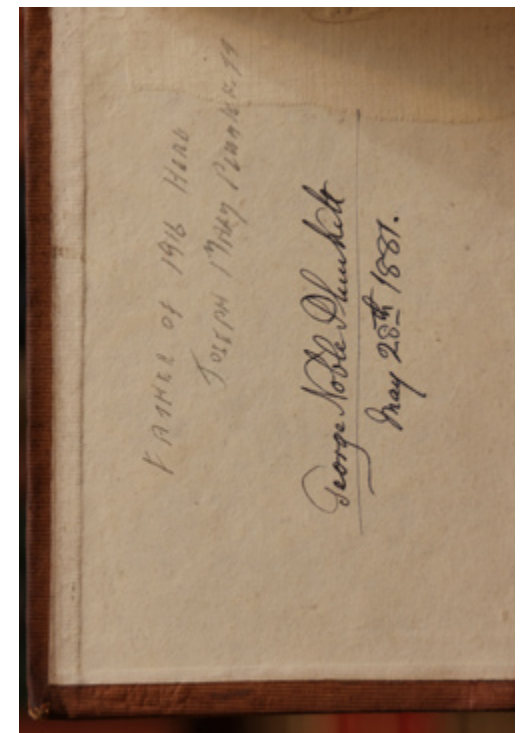 FATHER OF 1916 HERO
JOSEPH MARY PLUNKETT
George Noble Plunkett
May 28th 1881.